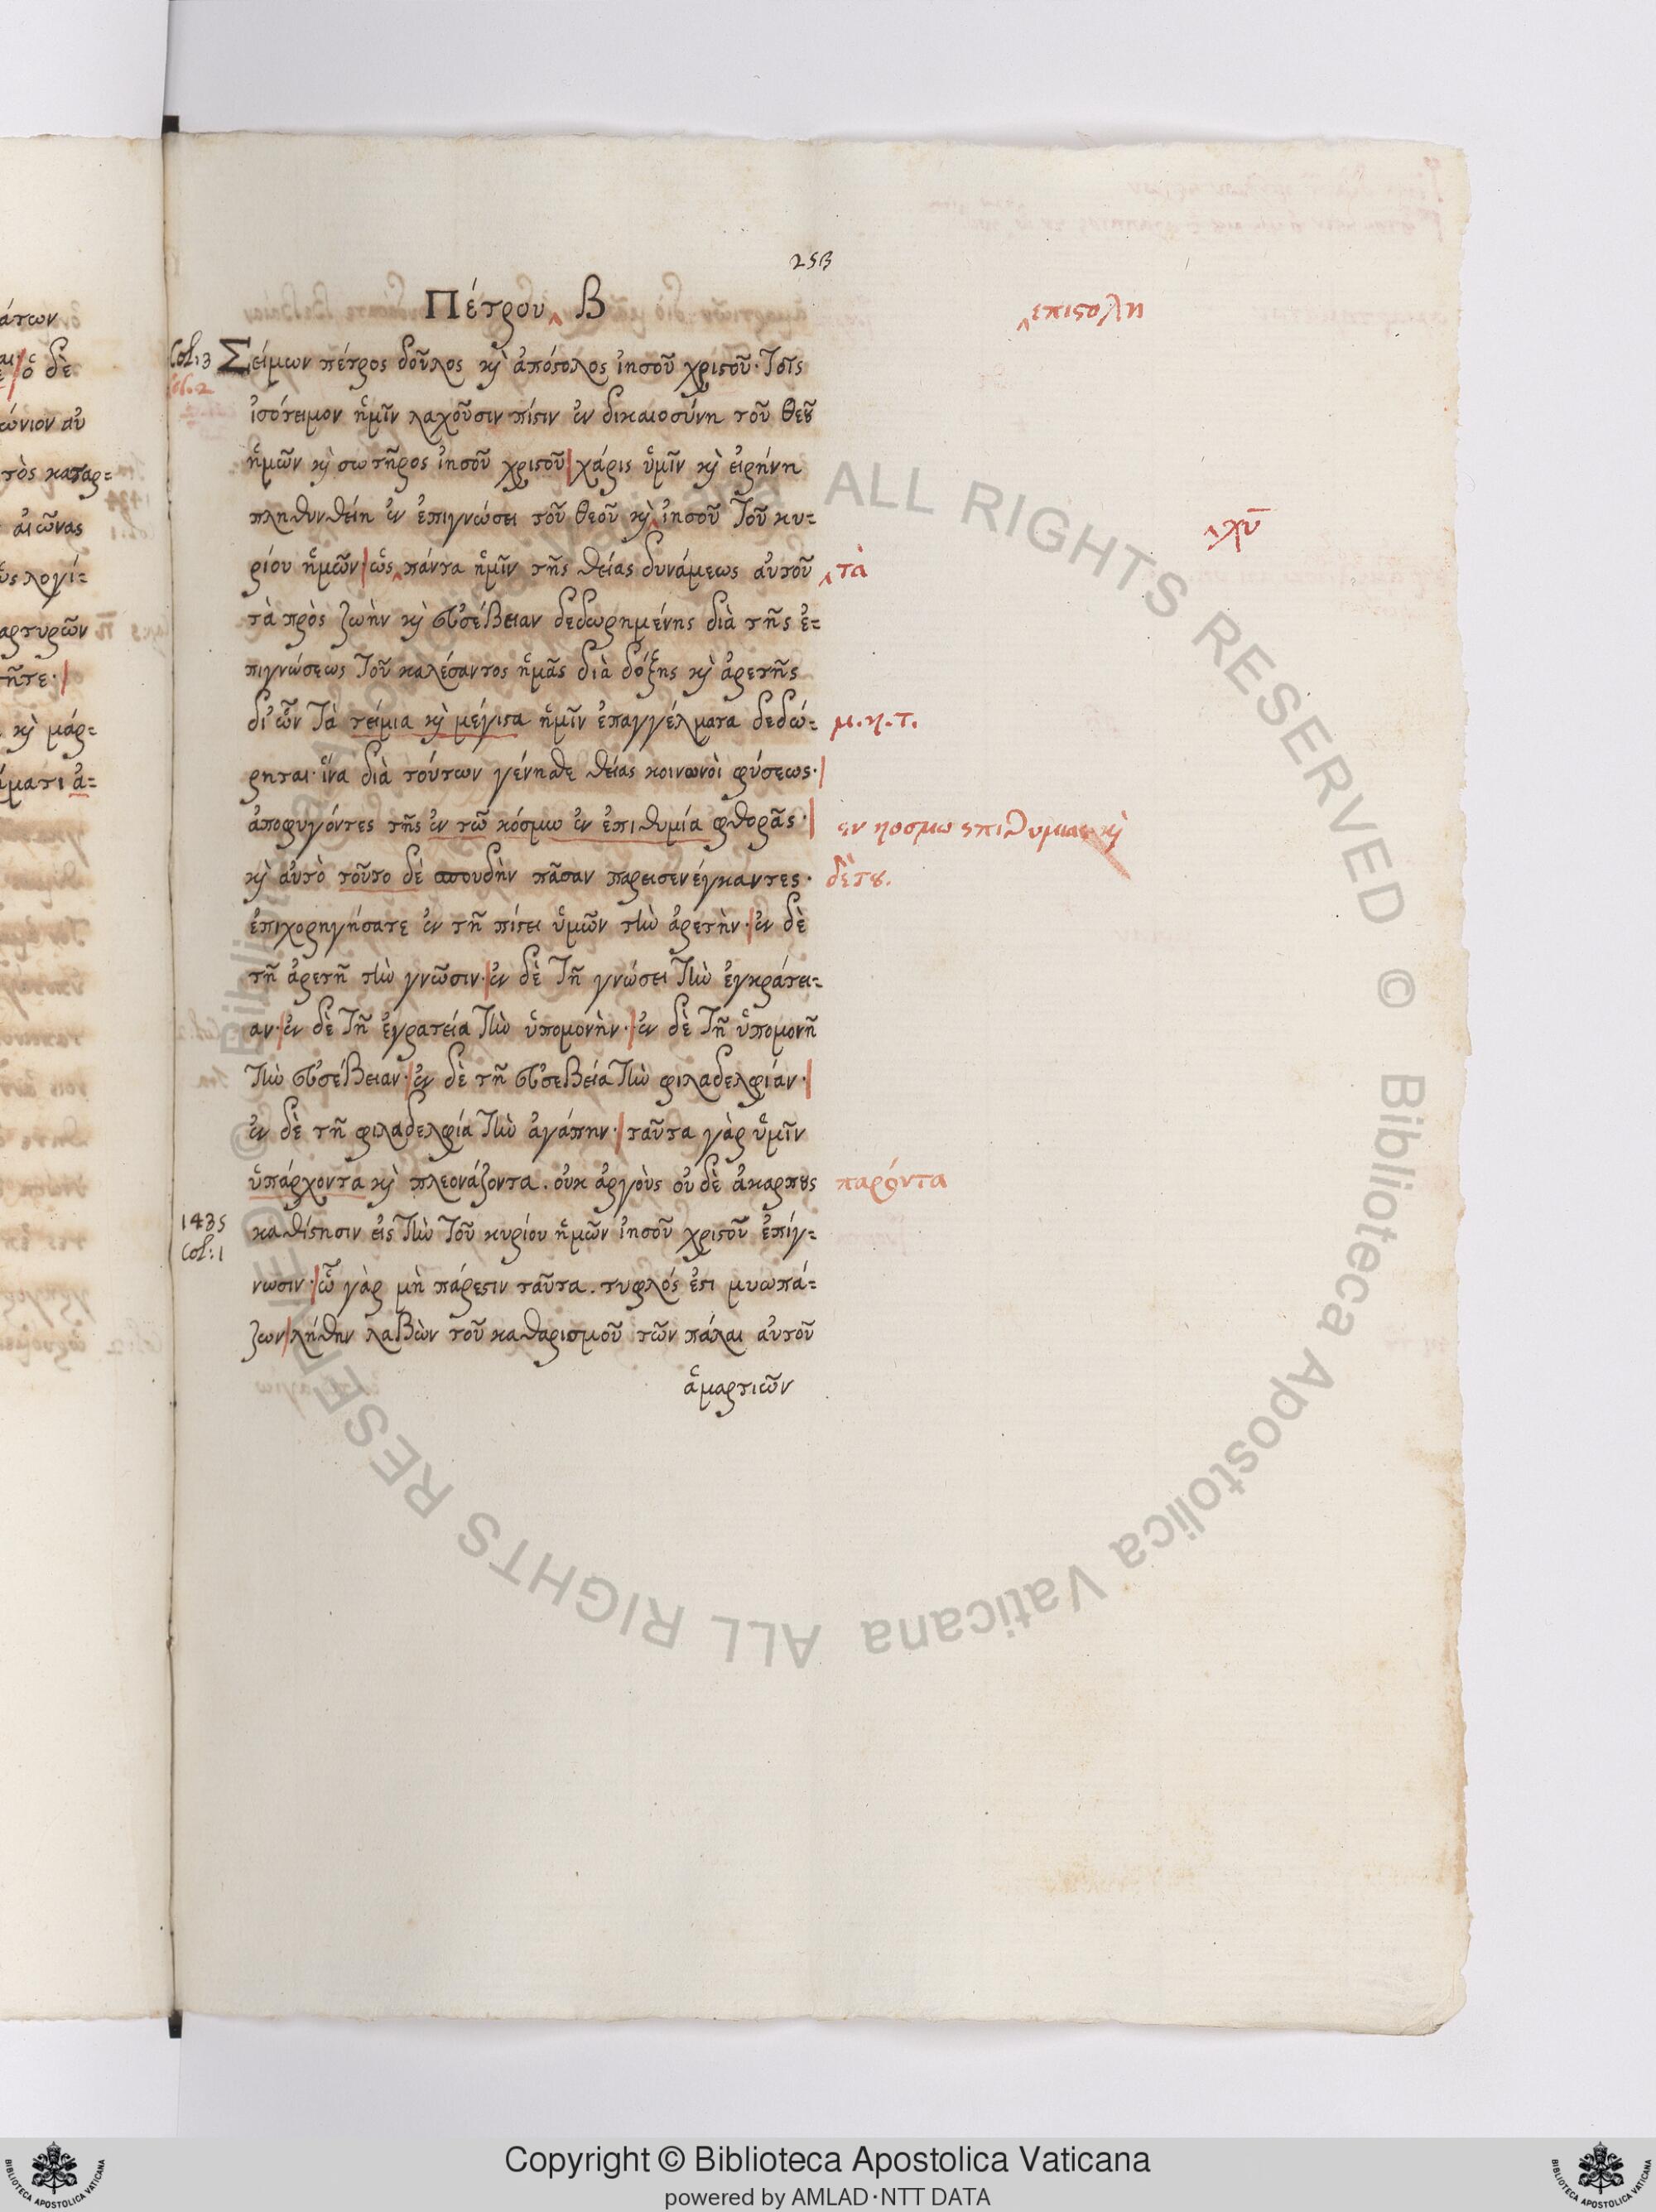 253
Πέτρου ‸ Β
‸ επιστολη
Col: 3 Σείμων πέτρος δοῦλος κὶ ἀπόστολος ἰησοῦ χριστοῦ· τοῖς
ἰσότειμον ἡμῖν λαχοῦσιν πίστιν ἐν δικαιοσύνη τοῦ θεοῦ
ἡμῶν κὶ σωτῆρος ἰησοῦ χριστοῦ| χάρις ὑμῖν κὶ εἰρήνη
πληθυνθείη ἐν ἐπιγνώσει τοῦ θεοῦ κὶ ‸ ἰησοῦ τοῦ κυ=
‸ χυ̅
ρίου ἡμῶν·| ὡς ‸ πάντα ἡμῖν τῆς θείας δυνάμεως αὐτοῦ ‸ τὰ
τὰ πρὸς ζωὴν κὶ εὐσέβειαν δεδωρημένης διὰ τῆς ἐ=
πιγνώσεως τοῦ καλέσαντος ἡμᾶς διὰ δόξης κὶ ἀρετῆς
δι' ὧν τὰ τείμια κὶ μέγιστα ἡμῖν ἐπαγγέλματα δεδώ= μ. κ. τ.
ρηται· ἵνα διὰ τούτων γένησθε θείας κοινωνοὶ φύσεως·|
ἀποφυγόντες τῆς ἐν τῶ κόσμω ἐν ἐπιθυμία φθορᾶς·| εν κοσμω επιθυμιας κὶ
κὶ αὐτὸ τοῦτο δὲ σπουδὴν πᾶσαν παρεισενέγκαντες· δὲ του.
ἐπιχορηγήσατε ἐν τῆ πίστει ὑμῶν τὴν ἀρετὴν·| ἐν δὲ
τῆ ἀρετῆ τὴν γνῶσιν·| ἐν δὲ τῆ γνώσει τὴν ἐγκράτει=
αν·| ἐν δὲ τῆ ἐγρατεία τὴν ὑπομονὴν·| ἐν δὲ τῆ ὑπομονῆ
τὴν εὐσέβειαν·| ἐν δὲ τῆ εὐσεβεία τὴν φιλαδελφίαν·|
ἐν δὲ τῆ φιλαδελφία τὴν ἀγάπην·| ταῦτα γὰρ ὑμῖν
ὑπάρχοντα κὶ πλεονάζοντα. οὐκ ἀργοὺς οὐδὲ ἀκαρπους παρόντα
1435
Col: 1
καθίστησιν εἰς τὴν τοῦ κυρίου ἡμῶν ἰησοῦ χριστοῦ ἐπίγ=
νωσιν·| ὧ γὰρ μὴ πάρεστιν ταῦτα. τυφλός ἐστι μυωπά=
ζων| λήθην λαβὼν τοῦ καθαρισμοῦ τῶν πάλαι αὐτοῦ
ἁμαρτιῶν
άτων
ὁ δὲ
ώνιον αὐ
τὸς καταρ=
αἰῶνας
λογί=
αρτυρῶν
ῆτε·|
κὶ μάρ=
ματι ἀ=
© Biblioteca Apostolica Vaticana ALL RIGHTS RESERVED © Biblioteca Apostolica Vaticana ALL RIGHTS RESERVED
Copyright © Biblioteca Apostolica Vaticana
powered by AMLAD·NTT DATA
BIBLIOTECA APOSTOLICA VATICANA
BIBLIOTECA APOSTOLICA VATICANA